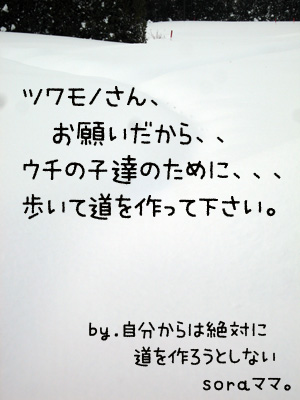 ツワモノさん、
お願いだから、、
ウチの子達のために、、、
歩いて道を作って下さい。
by.自分からは絶対に
道を作ろうとしない
soraママ。